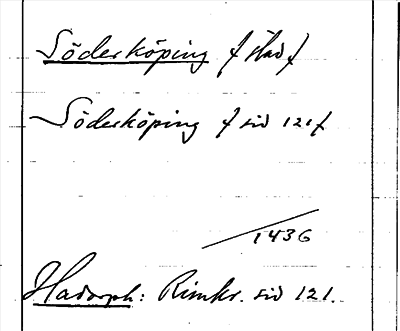 Söderköping / stad /
Söderköping / sid 121 /
1436
Hadorph: Rimkr. sid 121.